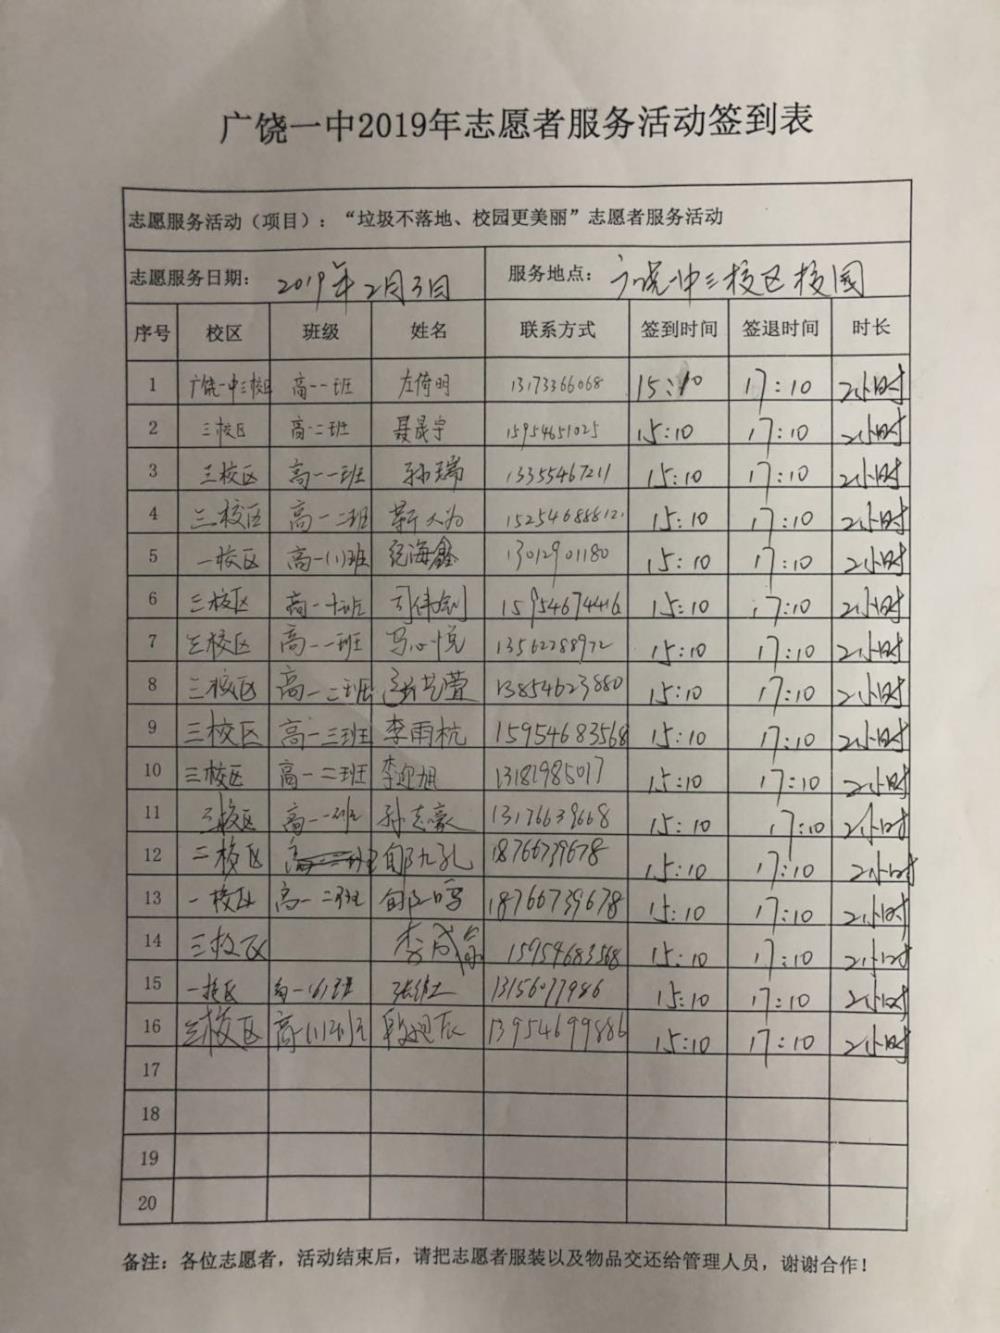 广饶一中2019年志愿者服务活动签到表
志愿服务活动（项目）：“垃圾不落地、校园更美丽”志愿者服务活动
志愿服务日期： 2019年2月3日 服务地点： 广饶一中三校区校园
序号 校区 班级 姓名 联系方式 签到时间 签退时间 时长
1 广饶一中三校区 高一一班 左倚明 13173366068 15:10 17:10 2小时
2 三校区 高一二班 聂晟宇 15954651025 15:10 17:10 2小时
3 三校区 高一一班 孙瑞 13355467211 15:10 17:10 2小时
4 三校区 高一二班 靳人为 15:10 17:10 2小时
5 一校区 高一(1)班 纪海鑫 13012901180 15:10 17:10 2小时
6 三校区 高一十班 司伟剑 15954674416 15:10 17:10 2小时
7 三校区 高一一班 马心悦 13562288972 15:10 17:10 2小时
8 三校区 高一二班 13854623880 15:10 17:10 2小时
9 三校区 高一三班 李雨杭 15954683568 15:10 17:10 2小时
10 三校区 高一二班 李迎旭 13181985017 15:10 17:10 2小时
11 三校区 高一一班 孙志豪 13176639668 15:10 17:10 2小时
12 二校区 18766739678 15:10 17:10 2小时
13 一校区 高一二班 18766739678 15:10 17:10 2小时
14 三校区 15954683568 15:10 17:10 2小时
15 一校区 13156077986 15:10 17:10 2小时
16 三校区 高一(1)班 13954699886 15:10 17:10 2小时
17
18
19
20
备注：各位志愿者，活动结束后，请把志愿者服装以及物品交还给管理人员，谢谢合作！